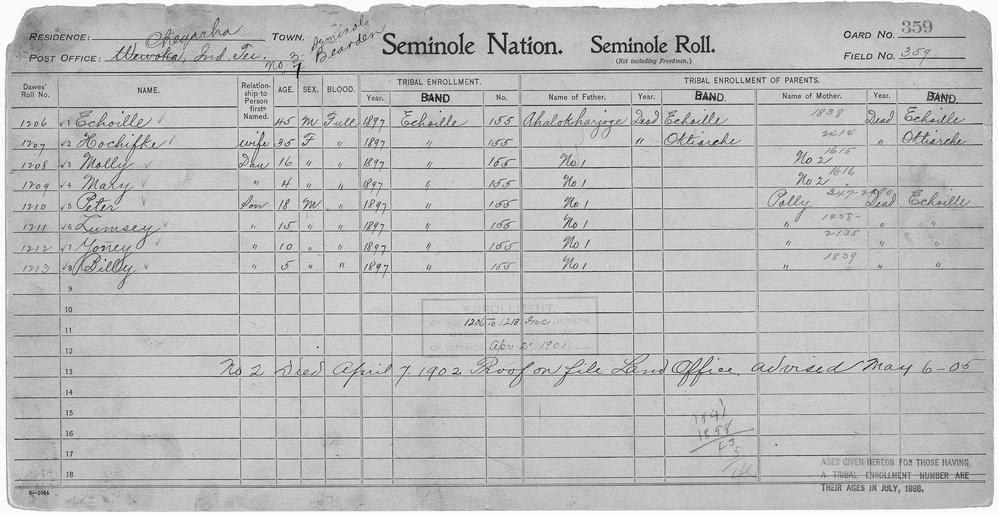 RESIDENCE: Cheyarha TOWN.
POST OFFICE: Wewoka, Ind. Ter. No. 3 Seminole Bearden
7
Seminole Nation. Seminole Roll.
(Not including Freedmen.)
CARD NO. 359
FIELD NO. 359
Dawes' Roll No. NAME. Relationship to Person first Named. AGE. SEX. BLOOD. TRIBAL ENROLLMENT. Year. BAND No. TRIBAL ENROLLMENT OF PARENTS. Name of Father. Year. BAND. Name of Mother. Year. BAND.
1206 1 Echoille 45 M Full 1897 Echoille 155 Ahalokharjoge Dead Echoille 1838 Dead Echoille
1207 2 Hochifke wife 35 F " 1897 " 155 " Ottiarche 2414 " Ottiarche
1208 3 Molly Dau 16 " " 1897 " 155 No 1 No 2 1615
1209 4 Mary " 4 " " 1897 " 155 No 1 No 2 1616
1210 5 Peter Son 18 M " 1897 " 155 No 1 Polly Dead Echoille
1211 6 Lumsey " 15 " " 1897 " 155 No 1 " 1438 " "
1212 7 Yoney " 10 " " 1897 " 155 No 1 " 2135 " "
1213 8 Billy " 5 " " 1897 " 155 No 1 " 1839 " "
9
10
ENROLLMENT
11
1206 to 1213 Inc.
12
Apr 2 1901
13 No 2 Died April 7. 1902 Proof on file Land Office advised May 6-05
14
15
1898
16
17
18
AGES GIVEN HEREON FOR THOSE HAVING
A TRIBAL ENROLLMENT NUMBER ARE
THEIR AGES IN JULY, 1898.
6-1064